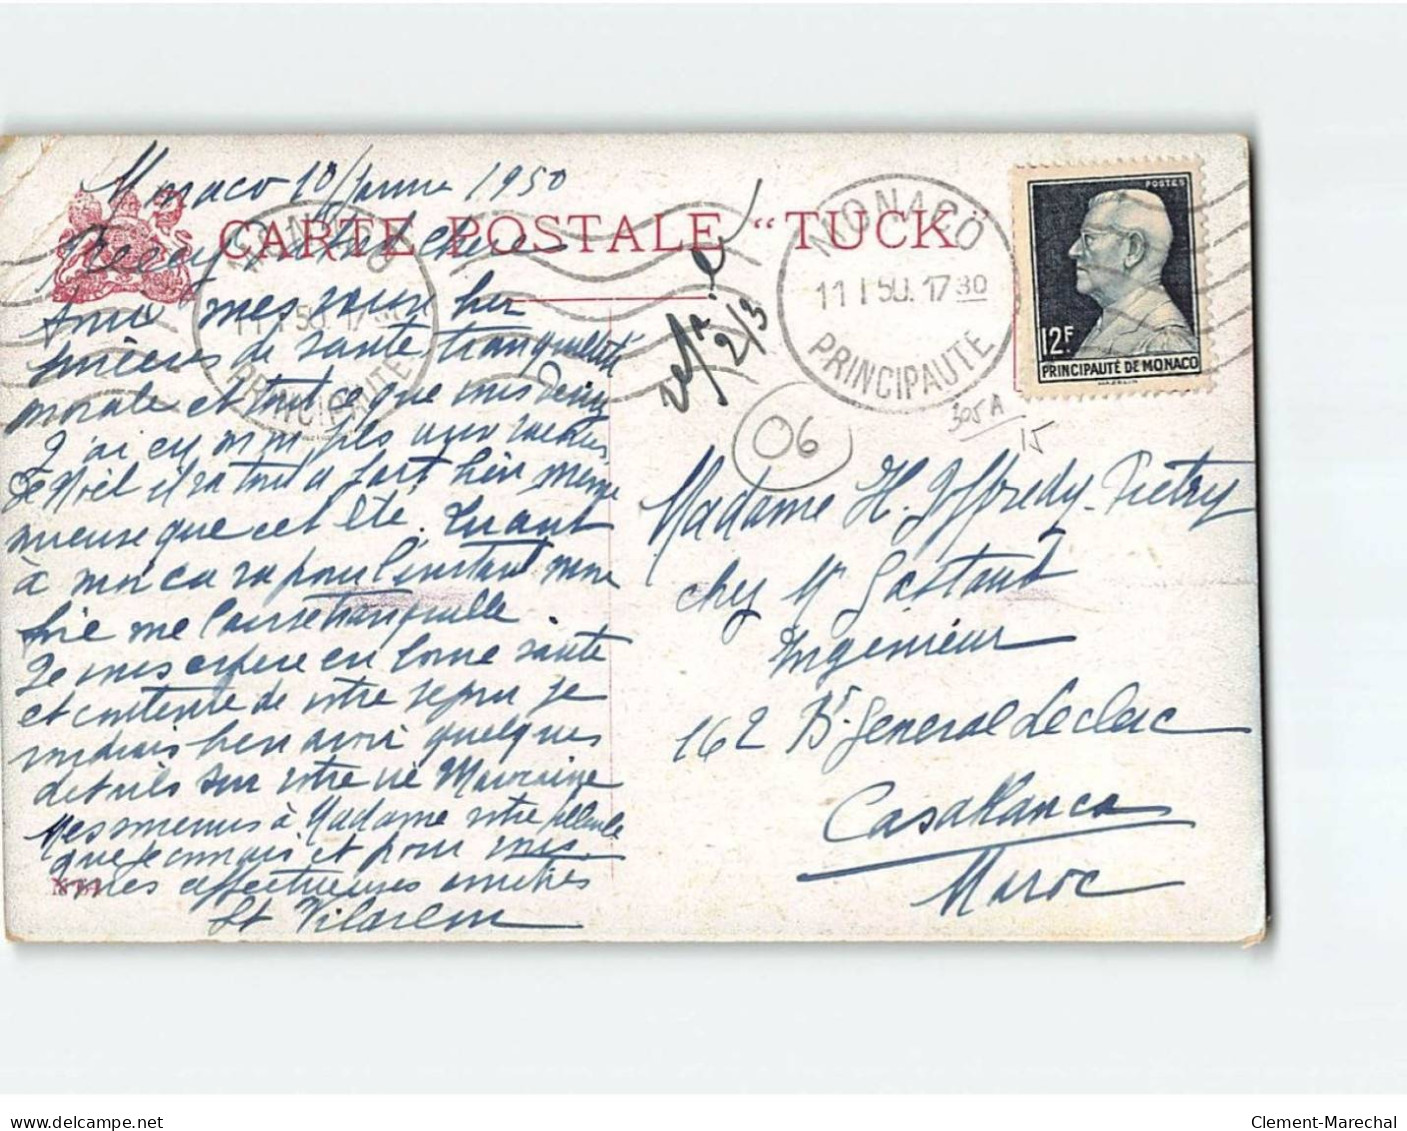 Monaco 10/Janvier 1950
CARTE POSTALE “TUCK”
MONACO
11 I 50. 17 30
PRINCIPAUTE
MONACO
11 I 50. 17 30
PRINCIPAUTE
POSTES
12F
PRINCIPAUTÉ DE MONACO
305A
15
06
2/3
chère
Amie mes vœux
sincères de santé tranquillité
morale et tout ce que
J'ai eu mon fils aux vacances
de Noël il va tout à fait bien même
mieux que cet été. Quant
à moi ca va pour l'instant mon
foie me laisse tranquille
Je vous espère en bonne santé
et contente de votre séjour je
voudrais bien avoir quelques
détails sur votre vie Marocaine
Mes à Madame votre
que je connais et pour vous
mes affectueuses amitiés
Vilarem
Madame H. Joffredy-Pietry
chez Mr Gastaud
Ingénieur
162 Bd General Leclerc
Casablanca
Maroc
Clement-Marechal